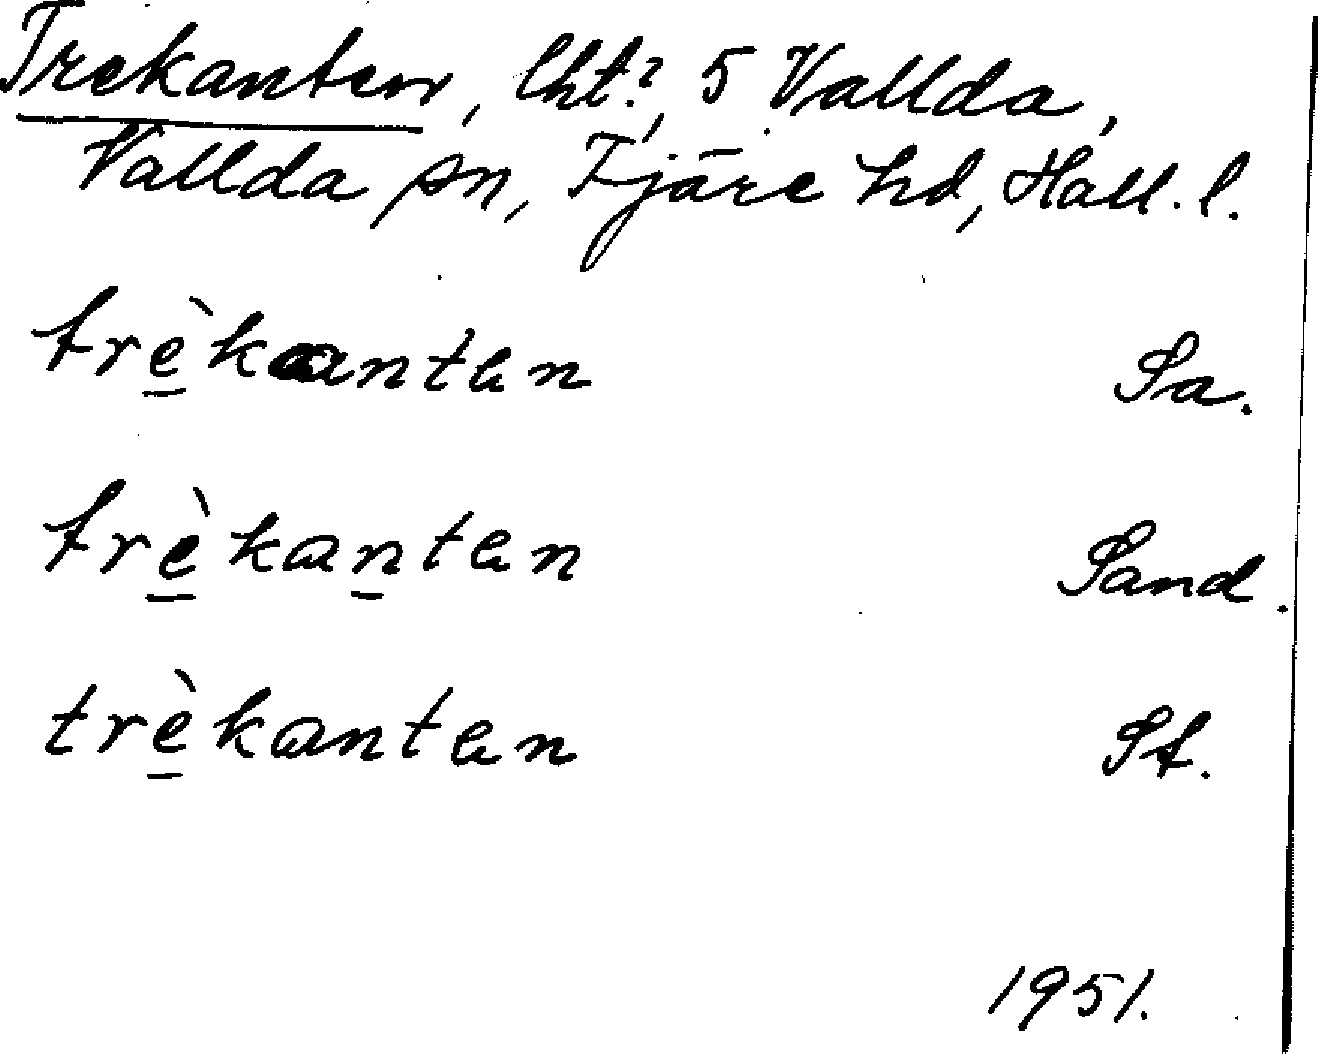 Trekanten, lht?, 5 Vallda,
Vallda sn, Fjäre hd, Hall. l.
trè̠kantən Sa.
trè̠kan̠tən Sand.
trè̠kantən St.
1951.